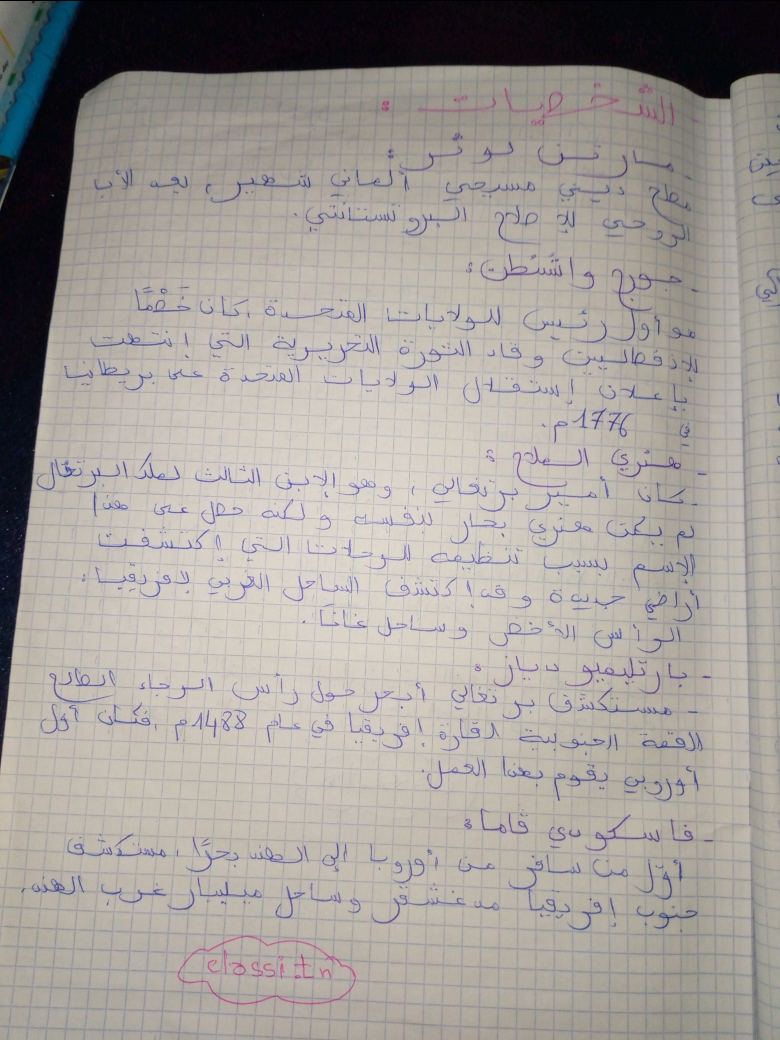 - الشخصيات :
- مارتن لوثر :
مصلح ديني مسيحي ألماني شهير، يعد الأب
الروحي للإصلاح البروتستانتي.
- جورج واشنطن :
هو أول رئيس للولايات المتحدة ،كان خَصْمًا
للإنفصاليين وقاد الثورة التحريرية التي إنتهت
بإعلان إستقلال الولايات المتحدة على بريطانيا
في 1776م.
- هنري الملاح :
- كان أمير برتغالي ، وهو الإبن الثالث لملك البرتغال
لم يكن هنري بحار بنفسه ولكنه حصل على هذا
الإسم بسبب تنظيمه للرحلات التي إكتشفت
أراضي جديدة وقد إكتشف الساحل الغربي لإفريقيا:
الرأس الأخضر وساحل غانا.
- بارتليميو دياز :
- مستكشف برتغالي أبحر حول رأس الرجاء الصالح
القمة الجنوبية لقارة إفريقيا في عام 1488م ،فكان أول
أوروبي يقوم بهذا العمل.
- فاسكو دي قاما:
أوّل من سافر من أوروبا إلى الهند بحرًا ،مستكشف
جنوب إفريقيا مدغشقر وساحل ميليبار غرب الهند.
classi.tn